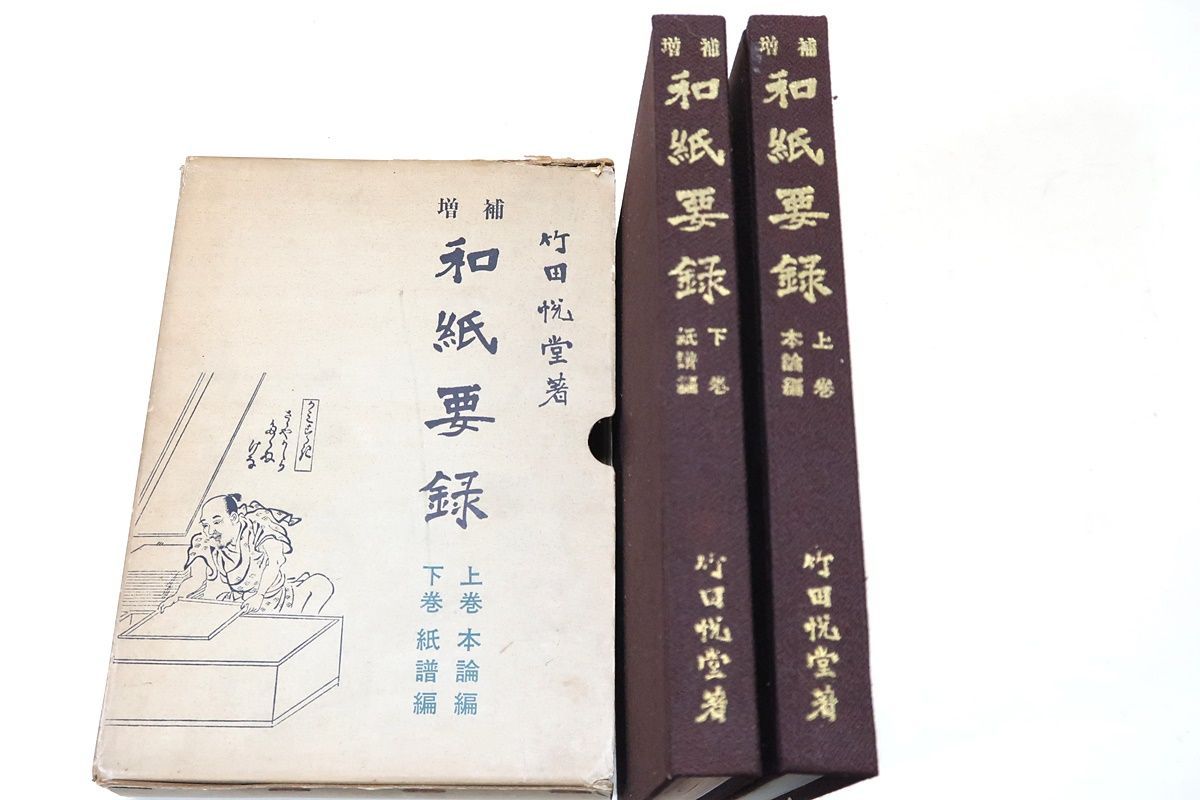 竹田悦堂著
増補
和紙要録
上巻 本論編
下巻 紙譜編
増補
和紙要録
下巻
紙譜編
竹田悦堂著
増補
和紙要録
上巻
本論編
竹田悦堂著